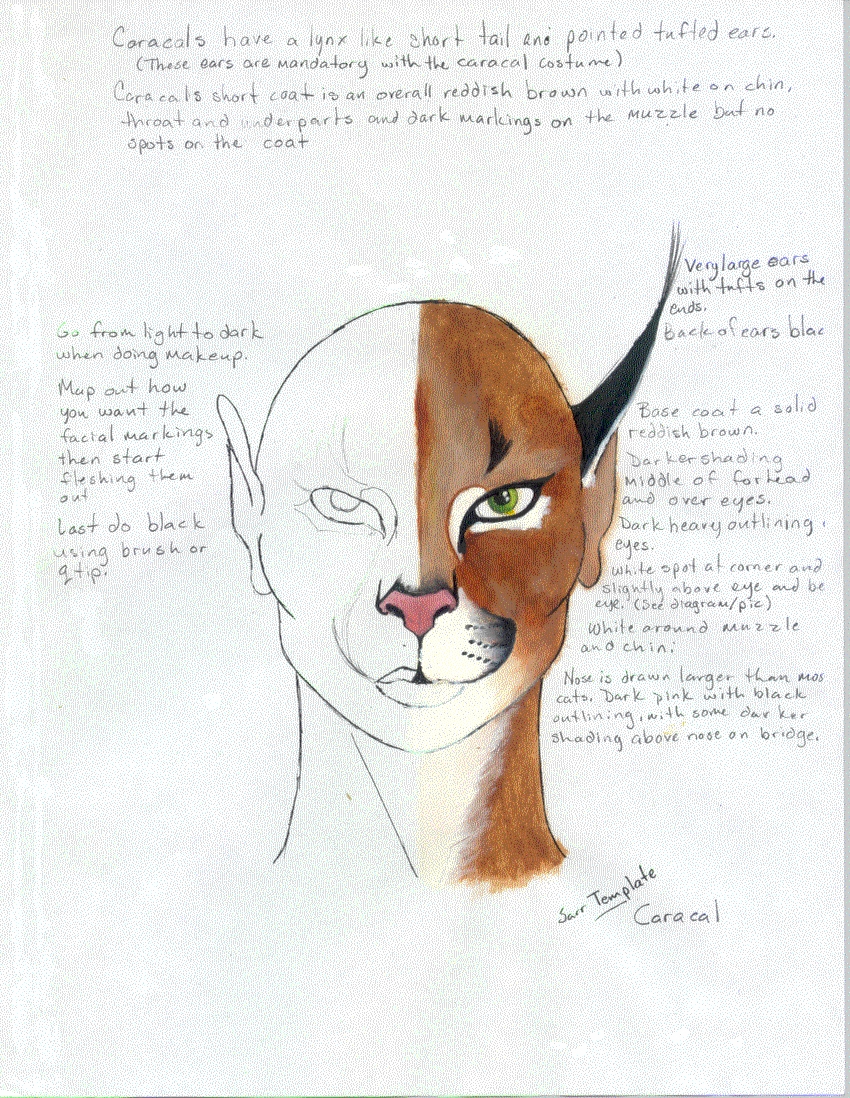 Caracals have a lynx like short tail and pointed tufted ears.
(These ears are mandatory with the caracal costume)
Caracals short coat is an overall reddish brown with white on chin,
throat and underparts and dark markings on the muzzle but no
spots on the coat
Very large ears
with tufts on the
ends.
Back of ears blac
Go from light to dark
when doing makeup.
Map out how
you want the
facial markings
then start
fleshing them
out
Last do black
using brush or
q tip.
Base coat a solid
reddish brown.
Darker shading
middle of forhead
and over eyes.
Dark heavy outlining
eyes.
White spot at corner and
slightly above eye and be
eye. (See diagram/pic)
White around muzzle
and chin.
Nose is drawn larger than mos
cats. Dark pink with black
outlining, with some darker
shading above nose on bridge.
Sarr Template
Caracal